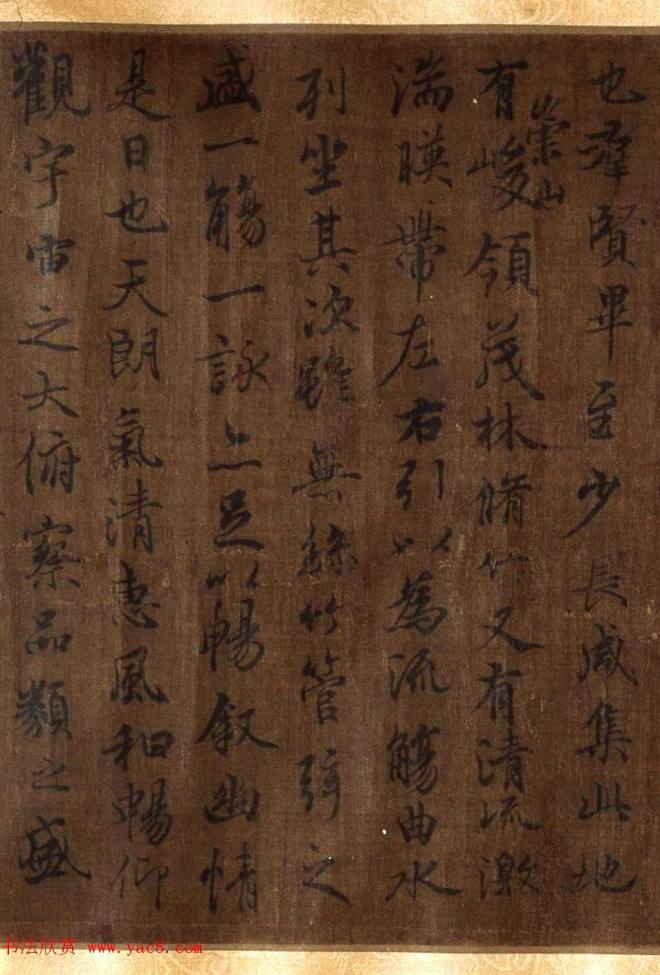 也羣賢畢至少長咸集此地
有崇山峻領茂林脩竹又有清流激
湍暎帶左右引以為流觴曲水
列坐其次雖無絲竹管弦之
盛一觴一詠亦足以暢叙幽情
是日也天朗氣清惠風和暢仰
觀宇宙之大俯察品類之盛
书法欣赏 www.yac8.com